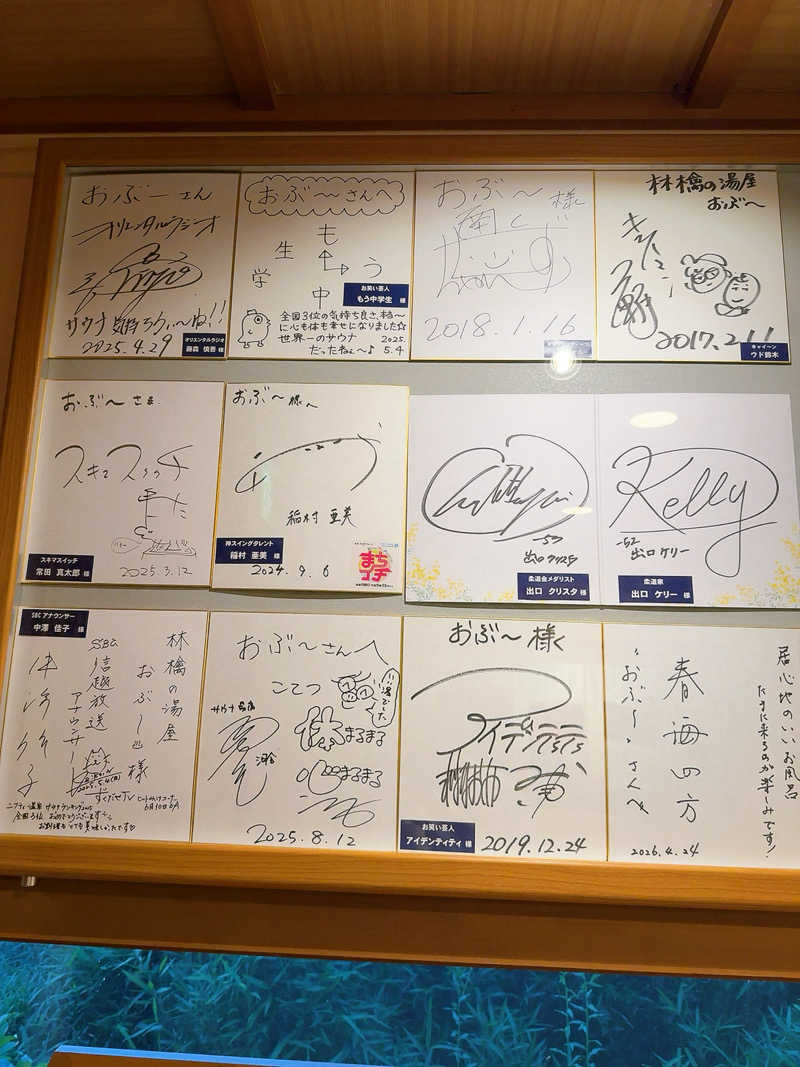 おぶ～さん
オリエンタルラジオ
サウナ
2025.4.29
オリエンタルラジオ
藤森 慎吾 様
おぶ～さんへ
もう中
学生
お笑い芸人
もう中学生 様
全国3位の気持ち良さ、本当～
に心も体も幸せになりました☆
世界一のサウナ
だったねぇ～♪
2025.
5.4
おぶ～様
2018.1.16
林檎の湯屋
おぶ～
2017.2.1
キャイーン
ウド鈴木
おぶ～さま
スキマスイッチ
2025.3.12
スキマスイッチ
常田 真太郎 様
おぶ～様へ
稲村 亜美
2024.9.6
神スイングタレント
稲村 亜美 様
まち
コチ
-57
出口クリスタ
柔道金メダリスト
出口 クリスタ 様
Kelly
-52
出口ケリー
柔道家
出口 ケリー 様
SBCアナウンサー
中澤 佳子 様
林檎の湯屋
おぶ～ 様
SBC信越放送
アナウンサー
中澤佳子
ずくだせTV
6月10日
ニフティ温泉 サウナランキング2025
全国3位 おめでとうございます
お料理もとても美味しかったです♡
おぶ～さんへ
こてつ
いい湯でした
サウナ
まるまる
まるまる
2025.8.12
おぶ～様
アイデンティティ
お笑い芸人
アイデンティティ 様
2019.12.24
居心地のいいお風呂
たまに来るのが楽しみです!
春海四方
おぶ～さんへ
2026.4.24